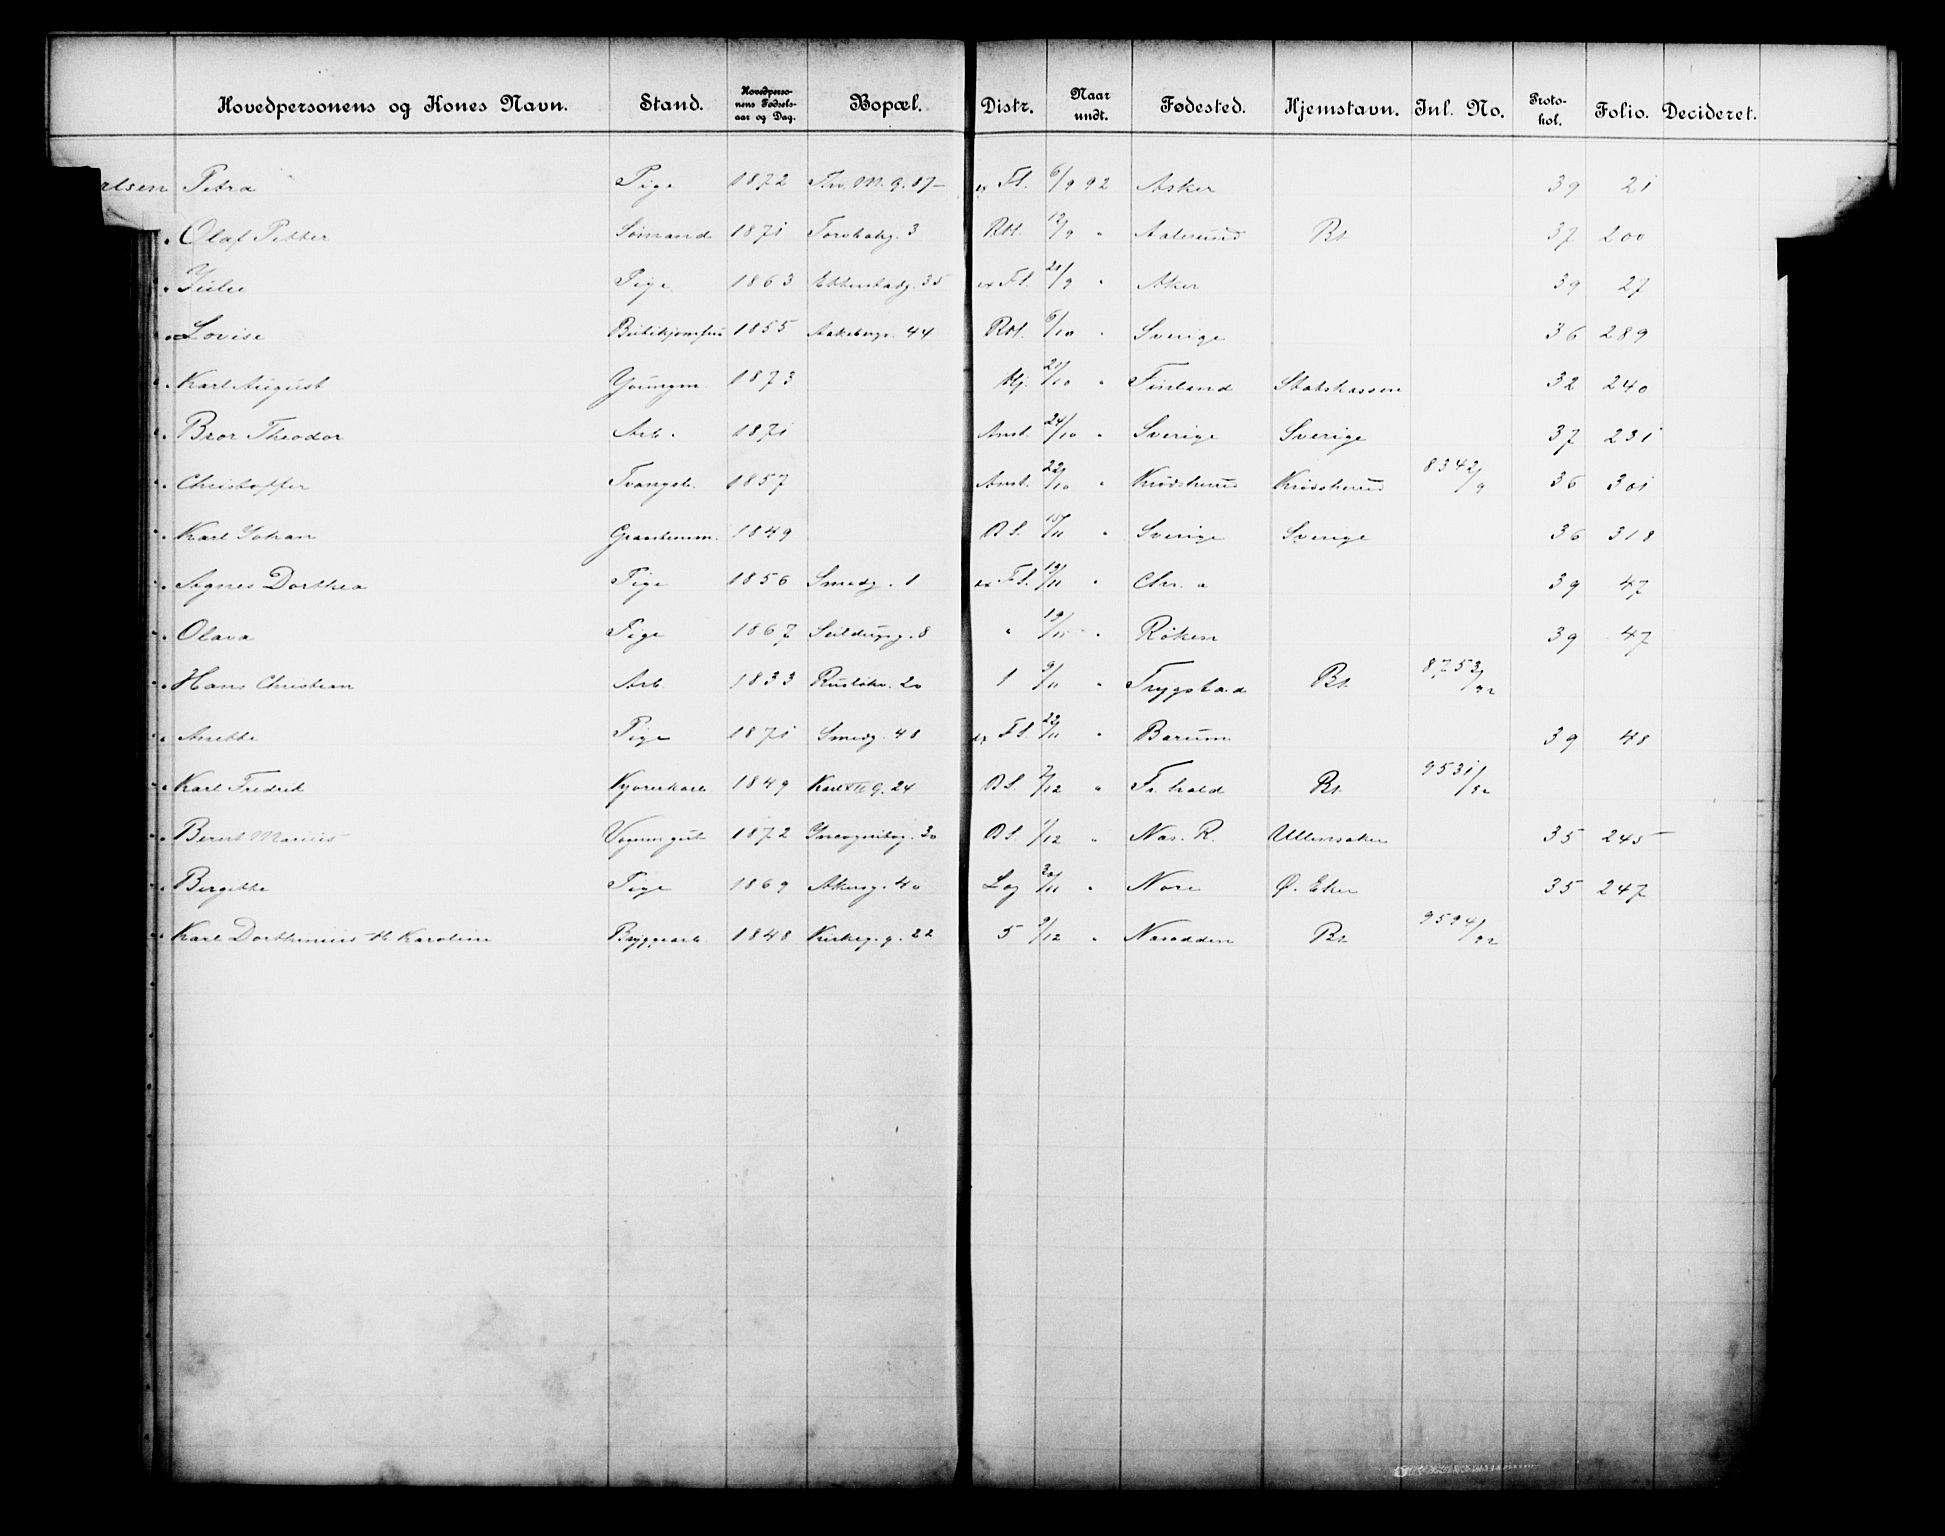 Hovedpersonens og Kones Navn. Stand. Hovedperso-nens Fødsels-aar og Dag. Bopæl. Distr. Naar undt. Fødested. Hjemstavn. Inl. No. Proto-kol. Folio. Decideret.
rlsen Petra Pige 1872 Thv. M. g. 87 ex Fl. 6/9 92 Asker 39 21
" Olaf Petter Sømand 1871 3 RH. 12/9 " Aalesund Bt. 37 200
" Julie Pige 1863 Etterstadg. 35 ex Fl. 20/9 " Aker 39 27
" Lovise 1855 Aakebergv. 44 RH. 6/10 " Sverige 36 289
" Karl August Youngm. 1873 21/10 " Finland Statskassen 32 240
" Bror Theodor Arb. 1871 Anst. 24/10 " Sverige Sverige 37 231
" Christoffer Tvangsl. 1857 Anst. 22/10 " Krødsherred Krødsherred 8342/9 36 301
" Karl Johan 1849 BS. 15/11 " Sverige Sverige 36 318
" Agnes Dorthea Pige 1856 Smedg. 1 ex Fl. 19/11 " Chr. a 39 47
" Olava Pige 1867 Seildugsg. 8 " 19/11 " Røken 39 47
" Hans Christian Arb. 1833 Ruseløkv. 20 1 9/11 " Trygstad Bt. 8753/92
" Anette Pige 1871 Smedg. 48 ex Fl. 22/11 " Bærum 39 48
" Karl Fredrik Kjørerkarl 1849 Karl XII g. 24 BS. 2/12 " Fr. hald Bt. 9531/92
" Bernt Marius Vognmgut 1872 Incognitog. 30 BS. 1/12 " Nas. R. Ullensaker 35 245
" Bergitte Pige 1869 Akersg. 40 Log 30/11 " Nore Ø. Eker 35 247
" Karl Dorthenius & Karoline Bryggearb. 1848 Kirkeg. g. 22 5 9/12 " Næsodden Bt. 9594/92